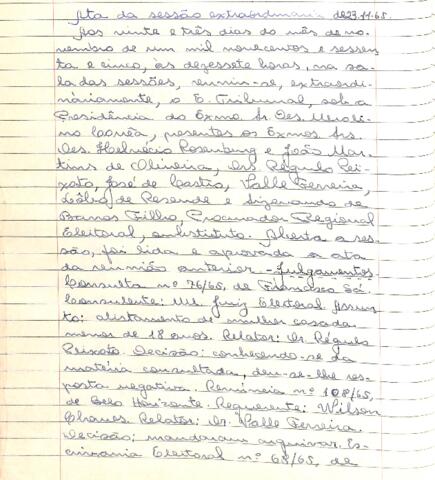 Ata da sessão extraordinaria de 23.11.65.
Aos vinte e três dias do mês de no-
vembro de um mil novecentos e sessen-
ta e cinco, às dezessete horas, na sa-
la das sessões, reuniu-se, extraordi-
nàriamente, o E. Tribunal, sob a
Presidência do Exmo. Sr. Des.
Corrêa, presentes os Exmos. Srs.
Des. Helvécio Rosenburg e João Mar-
tins de Oliveira, Drs. Régulo Pei-
xoto, José de Castro, Valle Ferreira,
de Resende e Sizenando de
Barros Filho, Procurador Regional
Eleitoral, substituto. Aberta a ses-
são, foi lida e aprovada a ata
da reunião anterior. - Julgamentos
Consulta nº 76/65, de Francisco Sá
Consulente: M. Juiz Eleitoral. Assun-
to: alistamento de mulher casada
menos de 18 anos. Relator: Dr. Régulo
Peixoto. Decisão: conhecendo-se da
matéria consultada, deu-se-lhe res-
posta negativa. Renúncia nº 108/65,
de Belo Horizonte. Requerente: Wilson
Chaves. Relator: Dr. Valle Ferreira.
Decisão: mandaram arquivar. Es-
crivania Eleitoral nº 68/65, de